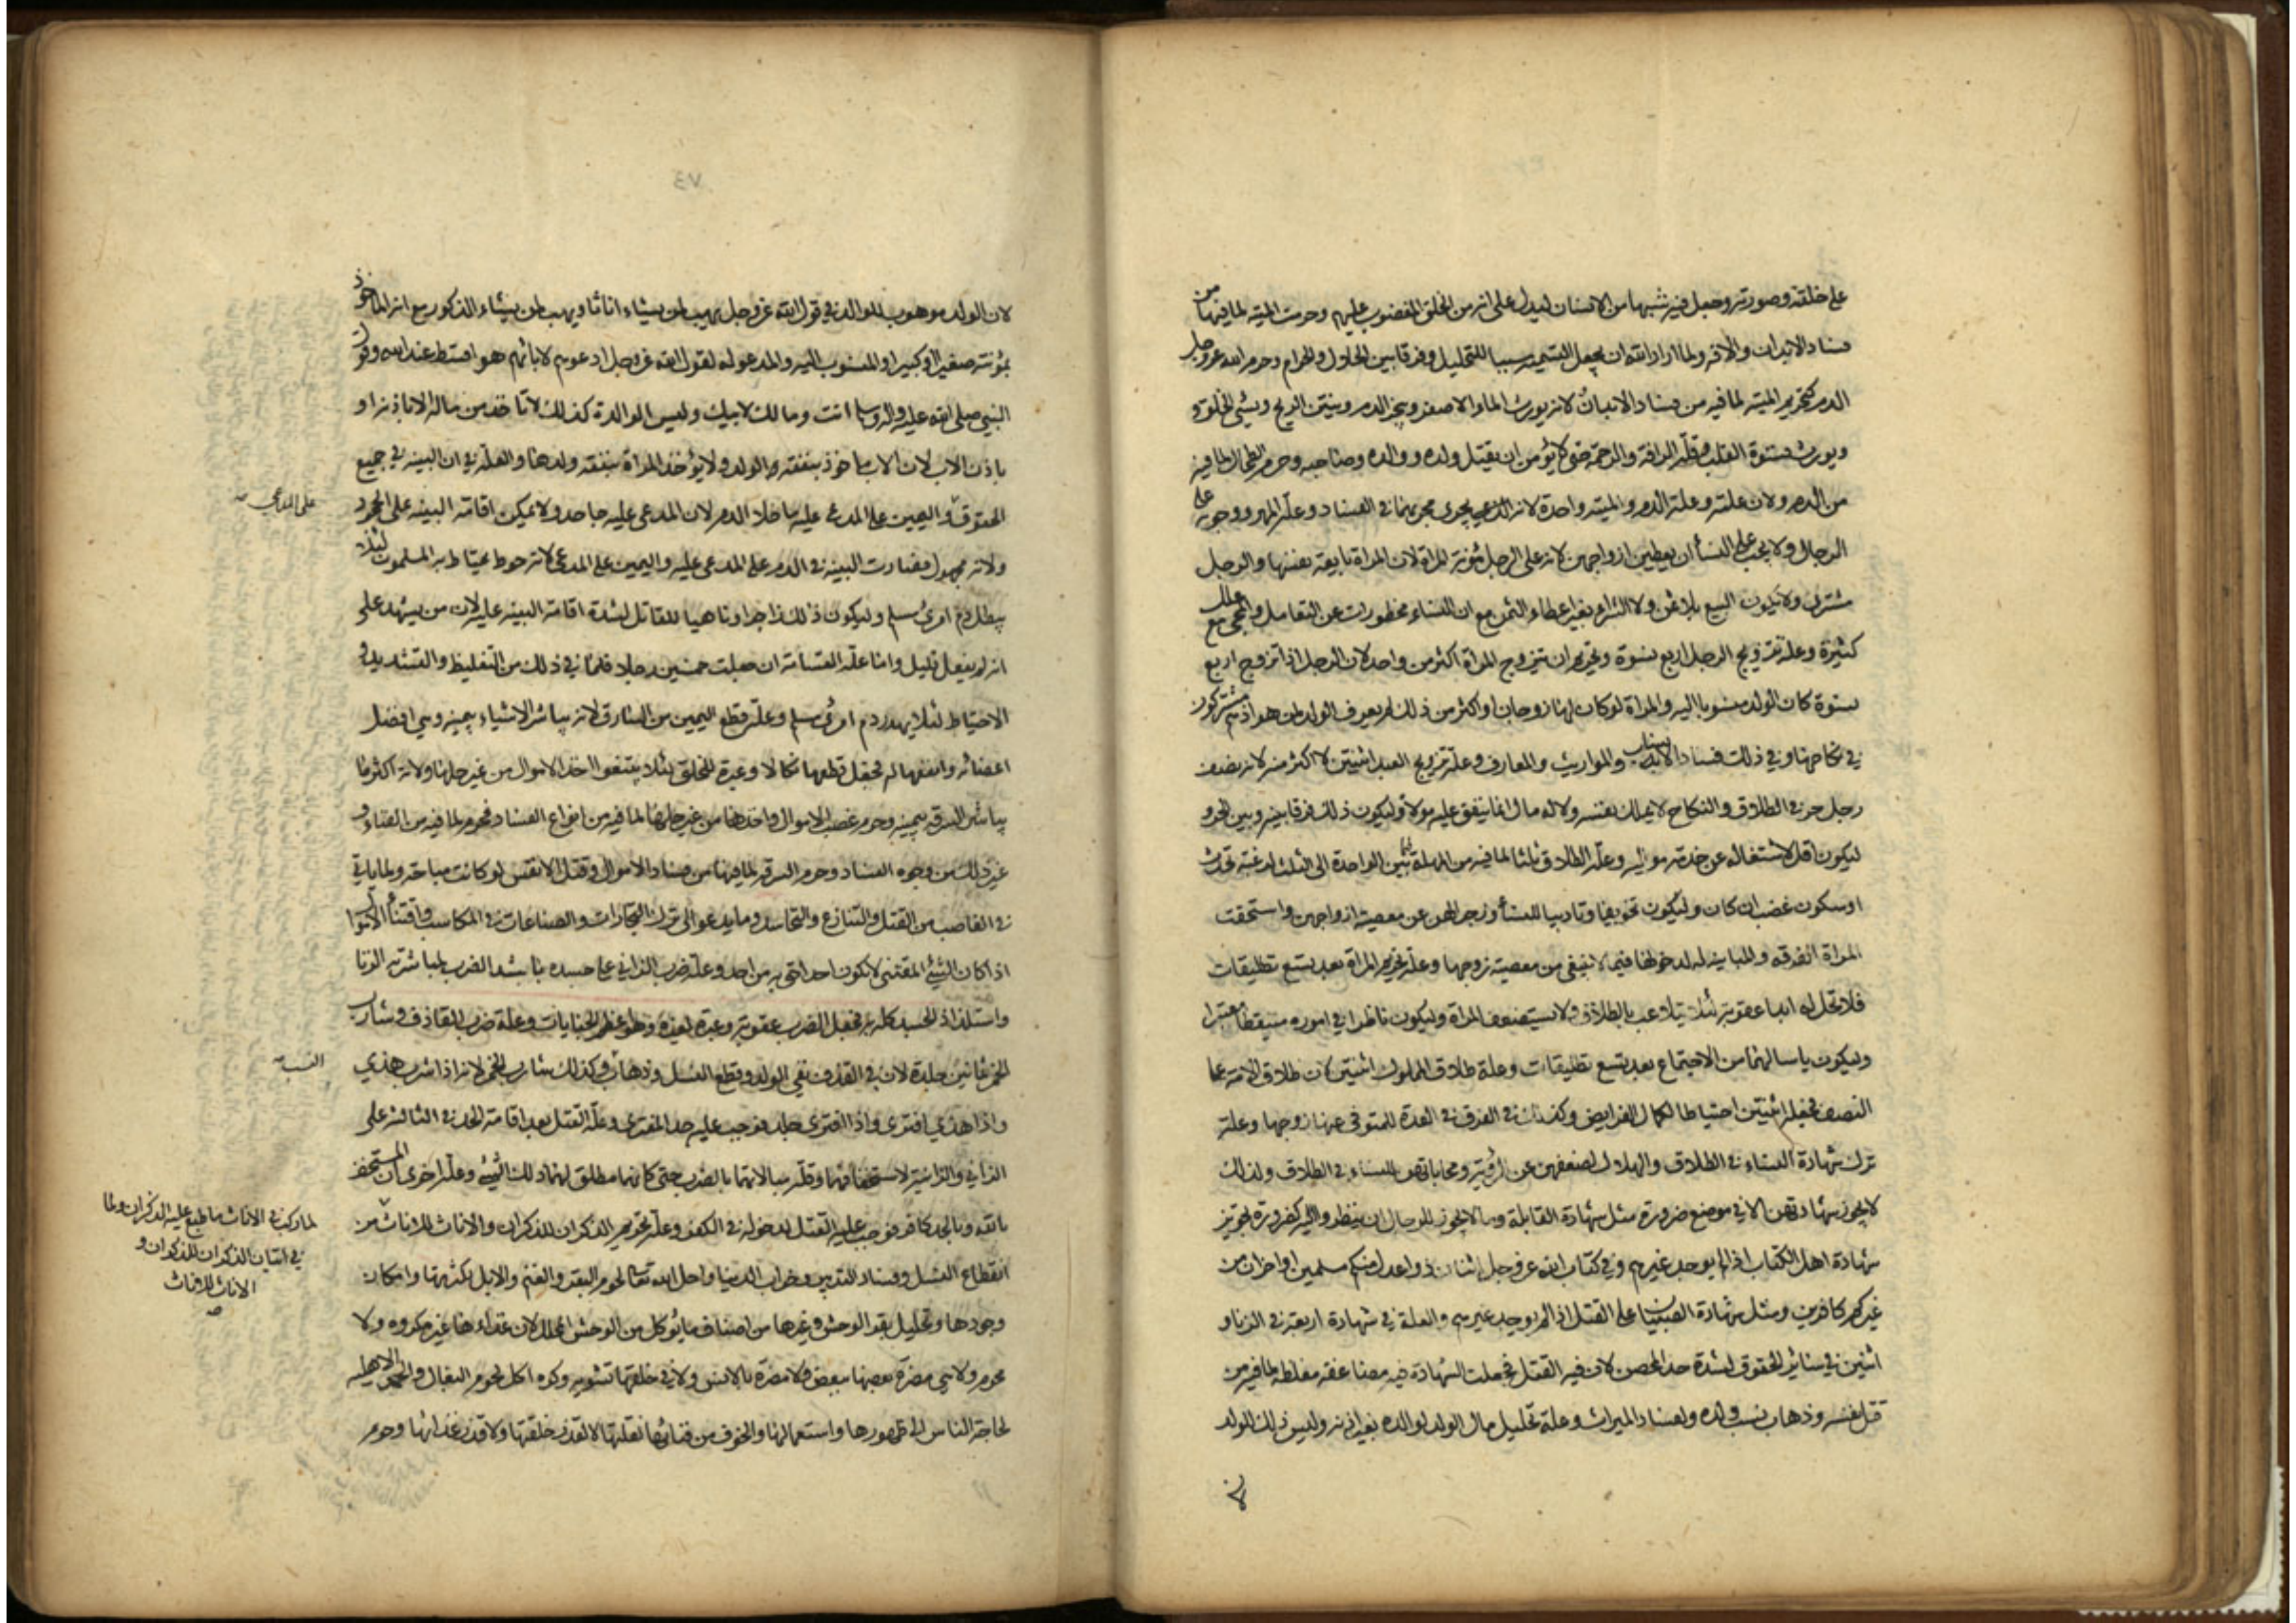 على خلقته وصورته وجعل فيه شبها من الانسان ليدل على انه من الخلق المغضوب عليهم وحرمت الميته لما فيها من
فساد الابدان والافة ولما اراد الله ان يجعل التسميه سببا للتحليل وفرقا بين الحلال والحرام وحرم الله عز وجل
الدم كتحريم الميته لما فيه من فساد الابدان لانه يورث الماء الاصفر ويبخر الفم وينتن الريح ويسئ الخلق و
ويورث قسوة القلب وقلة الرافة والرحمة حتى لا يؤمن ان يقتل ولده ووالده وصاحبه وحرم الطحال لما فيه
من الدم ولان علته وعلة الدم والميته واحدة لانه يجرى مجريهما في الفساد وعلة المهر ووجوبه على
الرجال ولا يجب على النسأ ان يعطين ازواجهن لان على الرجل مؤنة المراة لان المراة بايعة نفسها والرجل
مشترى ولا يكون البيع بلا ثمن ولا الشراء بغير اعطاء الثمن مع ان النساء محظورات عن التعامل والمجئ مع علل
كثيرة وعلة تزويج الرجل اربع نسوة وتحريم ان تتزوج المراة اكثر من واحد لان الرجل اذا تزوج اربع
نسوة كان الولد منسوبا اليه والمراة لو كان لها زوجان او اكثر من ذلك لم يعرف الولد لمن هو اذ هم مشتركون
في نكاحها وفي ذلك فساد الانساب والمواريث والمعارف وعلة تزويج العبد اثنتين لا اكثر منه لانه نصف
رجل حر في الطلاق والنكاح لا يملك نفسه ولا له مال انما ينفق عليه مولاه وليكون ذلك فرقا بينه وبين الحر و
ليكون اقل لاشتغاله عن خدمة مواليه وعلة الطلاق ثلثا لما فيه من المهلة فيما بين الواحدة الى الثلث لرغبة تحدث
او سكون غضب ان كان وليكون تخويفا وتاديبا للنسأ وزجرا لهن عن معصية ازواجهن واستحقت
المراة الفرقه والمباينه لدخولها فيما لا ينبغي من معصية زوجها وعلة تحريم المراة بعد تسع تطليقات
فلا تحل له ابدا عقوبة لئلا يتلاعب بالطلاق ولا يستضعف المراة وليكون ناظرا في اموره متيقظا معتبرا
وليكون ياسا لهما من الاجتماع بعد تسع تطليقات وعلة طلاق المملوك اثنتين لان طلاق الامة على
النصف فجعله اثنتين احتياطا لكمال الفرايض وكذلك في الفرق في العدة للمتوفى عنها زوجها وعلة
ترك شهادة النساء في الطلاق والهلال لضعفهن عن الرؤية ومحاباتهن للنساء في الطلاق ولذلك
لا يجوز شهادتهن الا في موضع ضرورة مثل شهادة القابلة وما لا يجوز للرجال ان ينظروا اليه كضرورة تجويز
شهادة اهل الكتاب اذا لم يوجد غيرهم وفي كتاب الله عز وجل اثنان ذوا عدل منكم مسلمين او اخران من
غيركم كافرين ومثل شهادة الصبيان على القتل اذا لم يوجد غيرهم والعلة في شهادة اربعة في الزنا و
اثنين في سائر الحقوق لشدة حد المحصن لان فيه القتل فجعلت الشهادة فيه مضاعفة مغلظه لما فيه من
قتل نفسه وذهاب نسب ولده ولفساد الميراث وعلة تحليل مال الولد لوالده بغير اذنه وليس ذلك للولد
لان
٧٤
لان الولد موهوب للوالد في قول الله عز وجل يهب لمن يشاء اناثا ويهب لمن يشاء الذكور مع انه الماخوذ
بمؤنته صغيرا او كبيرا والمنسوب اليه والمدعو له لقول الله عز وجل ادعوهم لابائهم هو اقسط عند الله وقول
النبي صلى الله عليه واله وسلم انت ومالك لابيك وليس الوالدة كذلك لا تاخذ من ماله الا باذنه او
باذن الاب لان الاب ماخوذ بنفقة الولد ولا يؤخذ المراة بنفقة ولدها والعلة في ان البينه في جميع
الحقوق واليمين على المدعى عليه ما خلا الدم لان المدعى عليه جاحد ولا يمكن اقامة البينه على الجحود
على المدعي
ولانه مجهول فصارت البينه في الدم على المدعى عليه واليمين على المدعى لانه حوط يحتاط به المسلمون لئلا
يبطل دم امرئ مسلم وليكون ذلك زاجرا وناهيا للقاتل لشدة اقامة البينه عليه لان من يشهد على
انه لم يفعل قليل واما علة القسامة ان جعلت خمسين رجلا فلما في ذلك من التغليظ والتشديد و
الاحتياط لئلا يهدر دم امرئ مسلم وعلة قطع اليمين من السارق لانه يباشر الاشياء بيمينه وهي افضل
اعضائه وانفعها له فجعل قطعها نكالا وعبرة للخلق لئلا يبتغوا اخذ الاموال من غير حلها ولانه اكثر ما
يباشر السرقه بيمينه وحرم غصب الاموال واخذها من غير حلها لما فيه من انواع الفساد محرم لما فيه من الفناء و
غير ذلك من وجوه الفساد وحرم السرقه لما فيها من فساد الاموال وقتل الانفس لو كانت مباحة ولما ياتي
في التغاصب من القتل والتنازع والتحاسد وما يدعو الى ترك التجارات والصناعات في المكاسب واقتناء الاموال
اذا كان الشئ المقتنى لا يكون احد احق به من احد وعلة ضرب الزاني على جسده باشد الضرب لمباشرته الزنا
واستلذاذ الجسد كله به فجعل الضرب عقوبة وعبرة لغيره وهو اعظم الجنايات وعلة ضرب القاذف وشارب
الخمر ثمانين جلدة لان في القذف نفي الولد وقطع النسل وذهاب وكذلك شارب الخمر لانه اذا شرب هذي
النسب
واذا هذي افترى واذا افترى جلد فوجب عليه حد المفترى وعلة القتل بعد اقامة الحد في الثالثة على
الزاني والزانية لاستخفافهما وقلة مبالاتهما بالضرب حتى كانهما مطلق لهما ذلك الشئ وعلة اخرى ان المستخف
بالله وبالحد كافر فوجب عليه القتل لدخوله في الكفر وعلة تحريم الذكران للذكران والاناث للاناث من
لما ركب في الاناث ما طبع عليه الذكران ولما
في اتيان الذكران للذكران و
الاناث للاناث
انقطاع النسل وفساد التدبير وخراب الدنيا واحل الله تعالى لحوم البقر والغنم والابل لكثرتها وامكان
وجودها وتحليل بقر الوحش وغيرها من اصناف ما يؤكل من الوحش المحلل لان غذاءها غير مكروه ولا
محرم ولا هي مضرة بعضها ببعض ولا مضرة بالانس ولا في خلقتها تشويه وكره اكل لحوم البغال والحمر الاهليه
لحاجة الناس الى ظهورها واستعمالها والخوف من فنائها لقلتها لا لقذر خلقتها ولا قذر غذائها وحرم